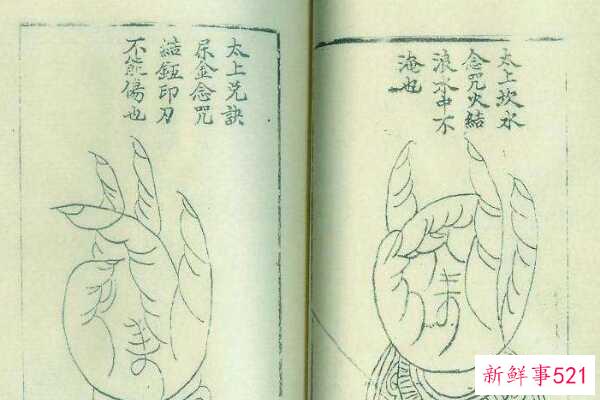 太上坎水
念咒火結
浪水中不
淹也
太上兑訣
尿金念咒
結鉦印刀
不能傷也
新鮮事521